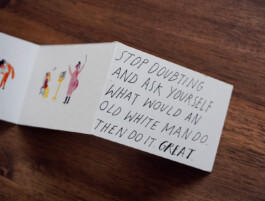 STOP DOUBTING
AND ASK YOURSELF
WHAT WOULD AN
OLD WHITE MAN DO.
THEN DO IT GREAT